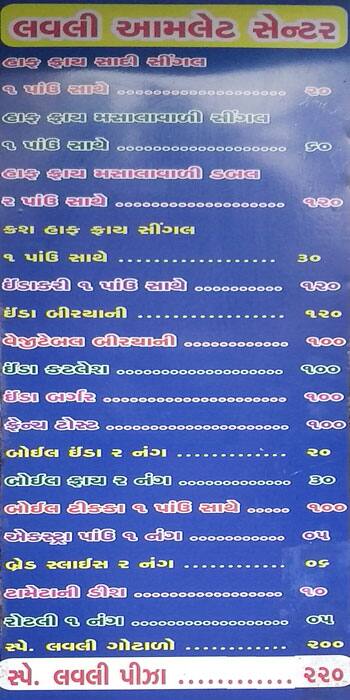 લવલી આમલેટ સેન્ટર
હાફ ફ્રાય સાદી સીંગલ
૧ પાંઉ સાથે .................... ૨૦
હાફ ફ્રાય મસાલાવાળી સીંગલ
૧ પાંઉ સાથે .................... ૬૦
હાફ ફ્રાય મસાલાવાળી ડબલ
૨ પાંઉ સાથે .................... ૧૨૦
ક્રશ હાફ ફ્રાય સીંગલ
૧ પાંઉ સાથે ................. ૩૦
ઈંડાકરી ૧ પાંઉ સાથે .......... ૧૨૦
ઈંડા બીરયાની ................. ૧૨૦
વેજીટેબલ બીરયાની ............ ૧૦૦
ઈંડા કટલેશ .................... ૧૦૦
ઈંડા બર્ગર ..................... ૧૦૦
ફ્રેન્ચ ટોસ્ટ ..................... ૧૦૦
બોઈલ ઈંડા ૨ નંગ ............. ૨૦
બોઈલ ફ્રાય ૨ નંગ ............. ૩૦
બોઈલ ટીકકા ૧ પાંઉ સાથે ..... ૧૦૦
એકસ્ટ્રા પાંઉ ૧ નંગ ........... ૦૫
બ્રેડ સ્લાઈસ ૨ નંગ ............ ૦૬
ટામેટાની ડીશ .................. ૧૦
રોટલી ૧ નંગ .................. ૦૫
સ્પે. લવલી ગોટાળો ............ ૨૦૦
સ્પે. લવલી પીઝા ............ ૨૨૦